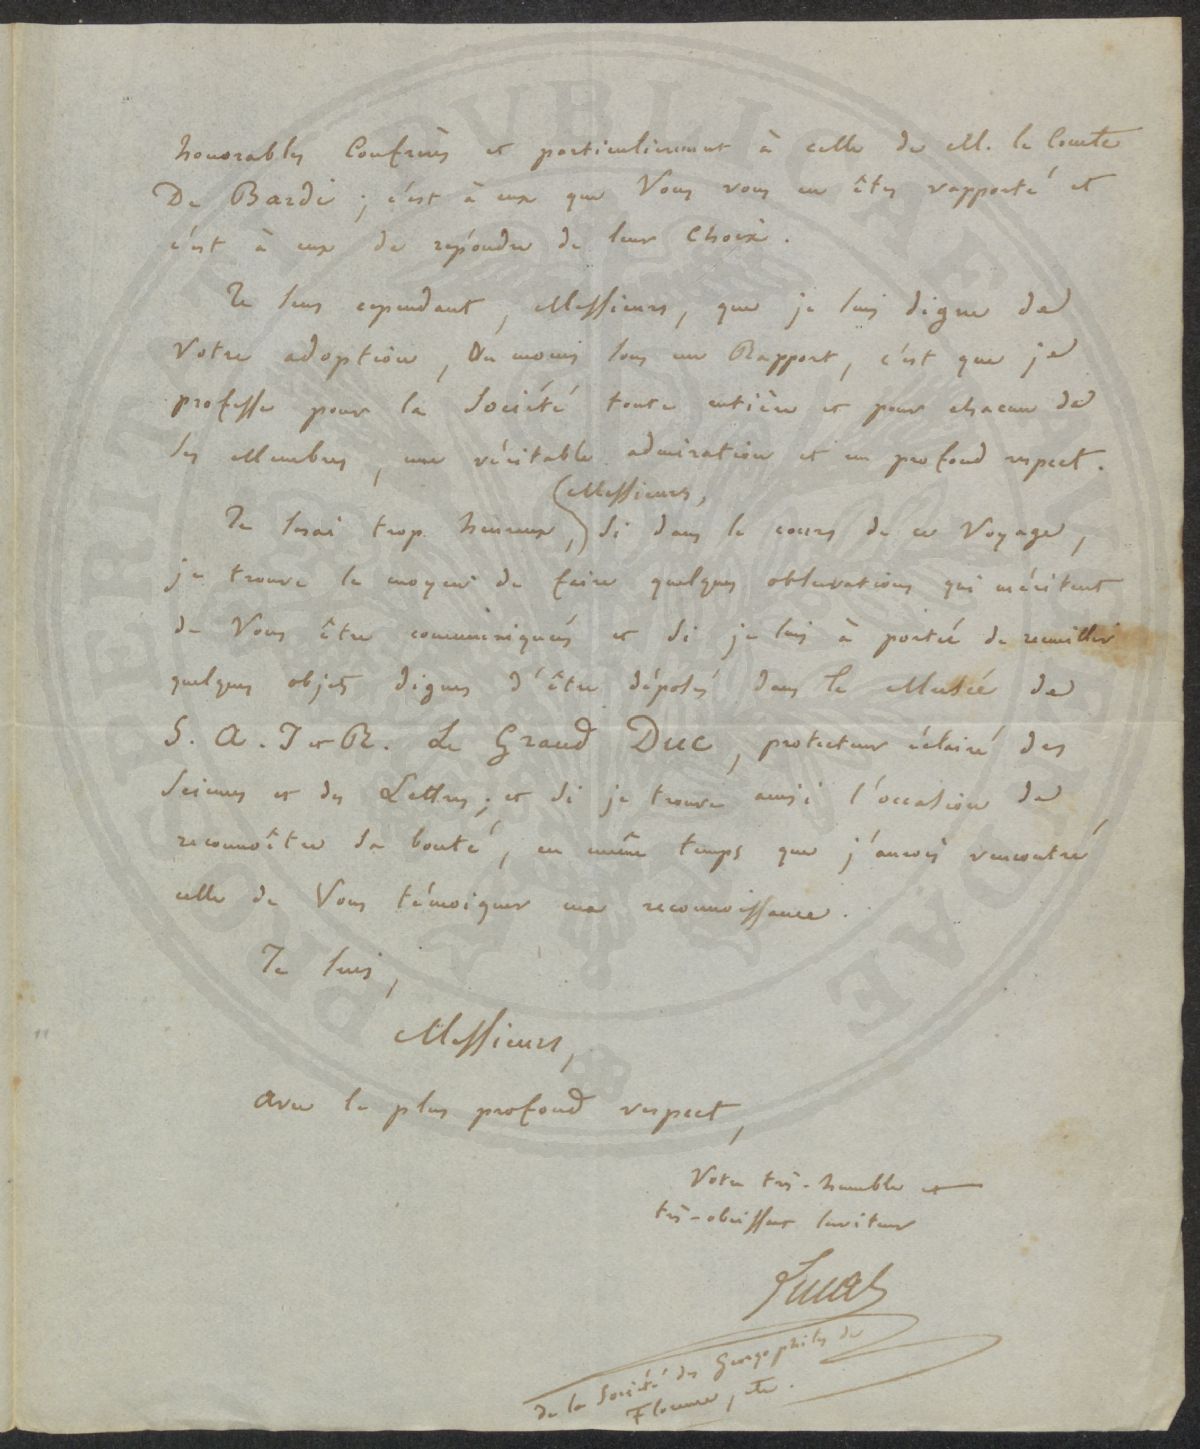 honorables Confrères et particulièrement à celle de M. le Comte
De Bardi ; c'est à eux que Vous vous en êtes rapporté et
c'est à eux de répondre de leur Choix.
Je sens cependant, Messieurs, que je suis digne de
Votre adoption, Du moins sous un Rapport, c'est que je
professe pour la Société toute entière et pour chacun de
ses Membres, une véritable admiration et un profond respect.
(Messieurs,
Je serai trop heureux,) si dans le cours de ce Voyage,
je trouve le moyen de faire quelques observations qui méritent
de Vous être communiqués et si je suis à portée de recueillir
quelques objets dignes d'être déposés dans le Musée de
S. A. I et R. Le Grand Duc, protecteur éclairé des
Sciences et des Lettres ; et si je trouve ainsi l'occasion de
reconnoître sa bonté, en même temps que j'aurois rencontré
celle de Vous témoigner ma reconnoissance.
Je suis,
Messieurs,
avec le plus profond respect,
Votre très-humble et
très-obéissant serviteur
Lucas
de la Société des Georgophiles de
Florence, etc.